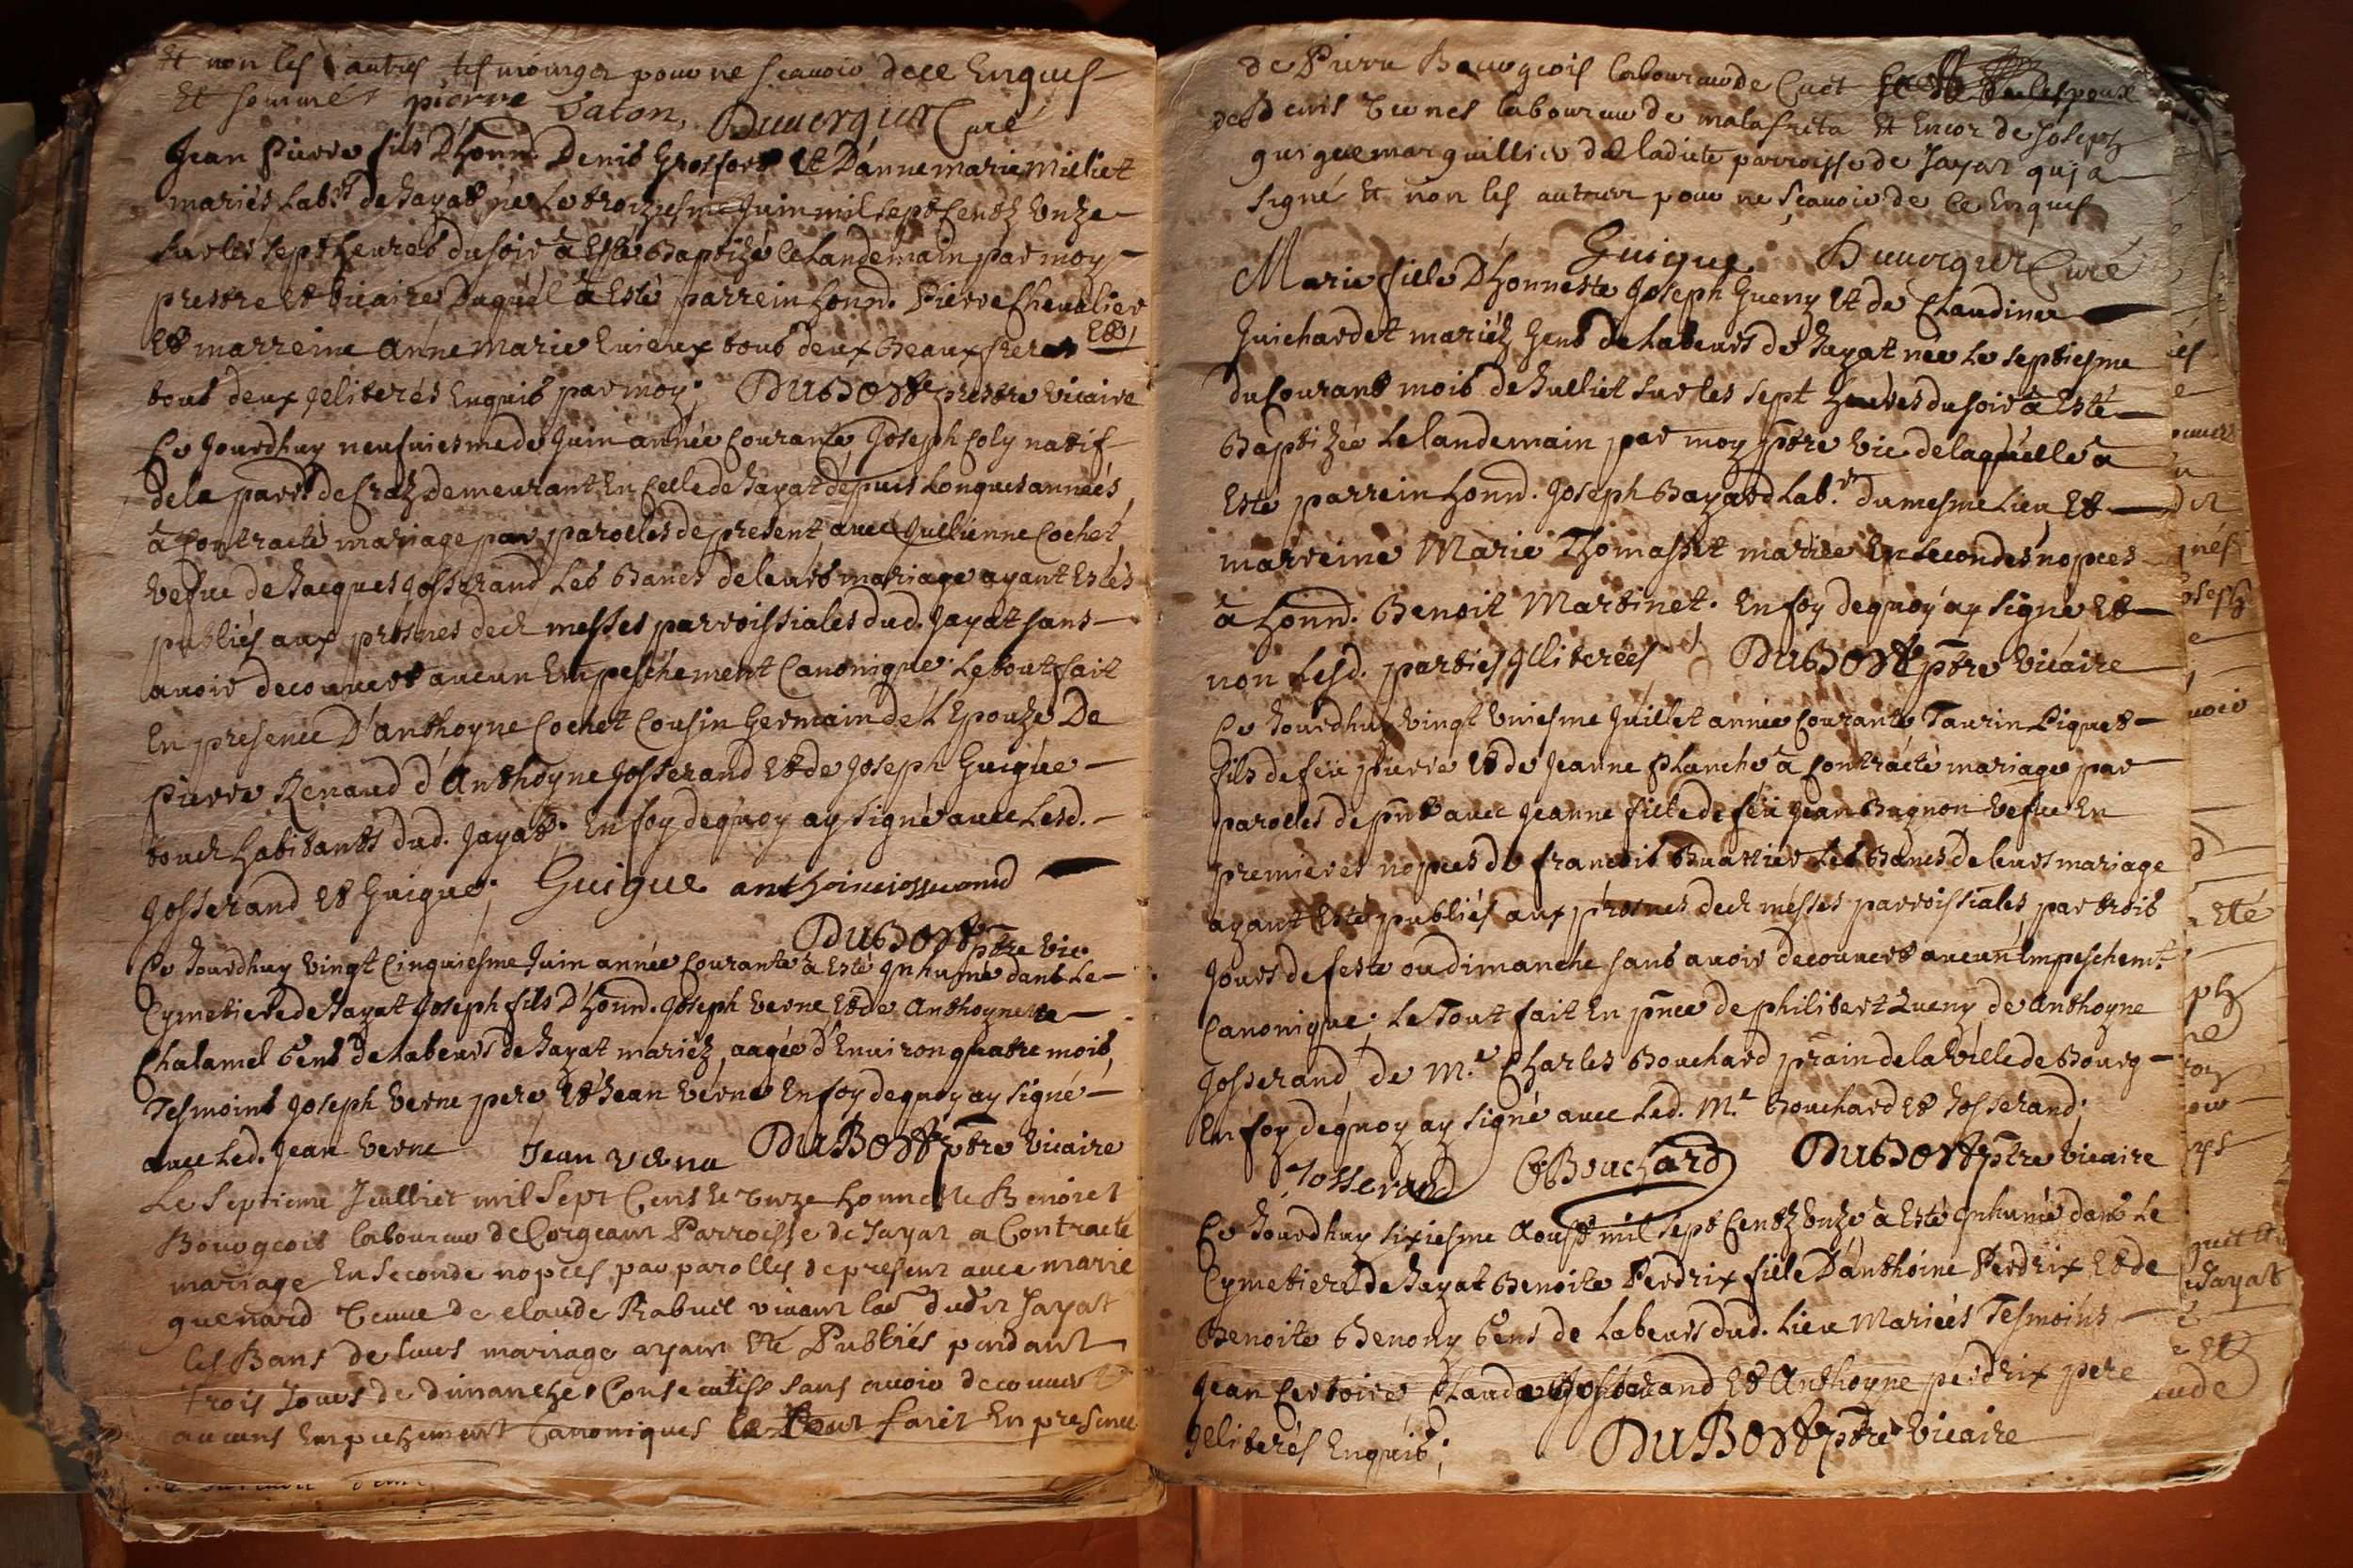 Et non les autres tesmoings pour ne scavoir de ce Enquis
Et sommé pierre Vaton, Duvergier Curé
Jean Pierre fils D'honn. Denis Grosfort Et D'anne marie Milliet
mariés Lab.rs de Jayat né Le troizjesme Juin mil sept Centz Unze
sur les sept heures du soir à Esté Baptizé le Landemain par moy
prestre Et Vicaire Duquel à Esté parrein honn. Pierre Chevalier
Et marreine Anne Marie Enieux tous deux Beaux freres Et
tous deux jlliterés Enquis par moy; DuBost prestre Vicaire
Ce Jourdhuy neufuiesme de Juin année Courante, Joseph Coly natif
de la parr. de Craz demeurant En Celle de Jayat dépuis Longues années,
à Contracté mariage par parolles de present avec Jullienne Cochet,
Vefue de Jacques Josserand Les Bancs de leurs mariage ayant Estés
publiés aux prosnes dech messes parroissiales dud. Jayat sans
auoir decouuert aucun Empeschement Canonique. Le tout fait
En presence D'anthoyne Cochet Cousin Germain de L'Epouze De
Pierre Renaud d'Anthoyne Josserand Et de Joseph Guigue
touch habitants dud. Jayat; En foy dequoy ay signé avec Lesd.
Josserand Et Guigue; Guigue anthoine josserand
DuBost ptre Vic.
Ce Jourdhuy Vingt Cinquiesme Juin année Courante à Esté jnhumé dans Le
Cymetiere de Jayat Joseph fils D'honn. Joseph Verne Et de Anthoynette
Chalamel Gens de Labeurs de Jayat mariéz, aagée d'Enuiron quatre mois,
Tesmoins Joseph Verne pere Et Jean Verne En foy dequoy ay signé
avec Led. Jean Verne Jean verne DuBost ptre Vicaire
Le Septieme Jeulliet mil Sept Cents et Unze honneste Benoiet
Bourgeois laboureur de Corgeat Parroisse de Jayat a Contracté
mariage En Seconde nopces par parolles de present avec marie
guenard Veuve de claude Rabuil vivant lab. dudit Jayat
les Bans de leurs mariage ayant Eté Publiés pendant
trois Jours de dimanches Consecutifs sans avoir decouvert
aucuns Empechement Canoniques le tout fait En presence
de Pierre Bourgeois laboureur de Cuet
de Denis laboureur de malafreta Et Encor de Joseph
guigue marguillier de ladite parroisse de Jayat quj a
signé Et non les autres pour ne Sçavoir de ce Enquis
Guigue Duvergier Curé
Marie fille D'honneste Joseph Gueny Et de Claudine
Guichardet mariéz Gens de Labeurs de Jayat née Le septiesme
du Courant mois de Julliet sur les sept heures du soir à Esté
Baptizée Le landemain par moy ptre Vic. de laquelle à
Esté parrein honn. Joseph Bayard Lab.r du mesme Lieu Et
marreine Marie Thomasset mariée En secondes nopces
à honn. Benoit Martinet. En foy dequoy ay signé Et
non Lesd. parties jlliterées DuBost ptre Vicaire
Ce Jourdhuy Vingt Uniesme Juillet année Courante, Taurin Piquet
fils de feu Pierre Et de Jeanne Planche à Contracté mariage par
parolles de pnt avec Jeanne fille de feu Jean Bagnon Vefue En
premieres nopces de francois Buattier Les Bancs de leurs mariage
ayant Esté publiés aux prosnes dech messes parroissiales, par trois
Jours de feste ou dimanche sans avoir decouvert aucun Empeschemt.
Canonique; Le Tout fait En pnce de philibert Queny de Anthoyne
Josserand de M.e Charles Bouchard de la Ville de Bourg
En foy dequoy ay signé avec Led. M.e Bouchard Et Josserand;
Josserand CBouchard DuBost ptre Vicaire
Ce Jourdhuy sixiesme Aoust mil sept Centz Unze à Esté jnhumé dans Le
Cymetiere de Jayat Benoite Perdrix fille D'anthoine Perdrix Et de
Benoite Benony Gens de Labeurs dud. Lieu Mariées Tesmoins
Jean Certoire Claude Josserand Et Anthoyne perdrix pere
jlliterés Enquis; DuBost ptre Vicaire